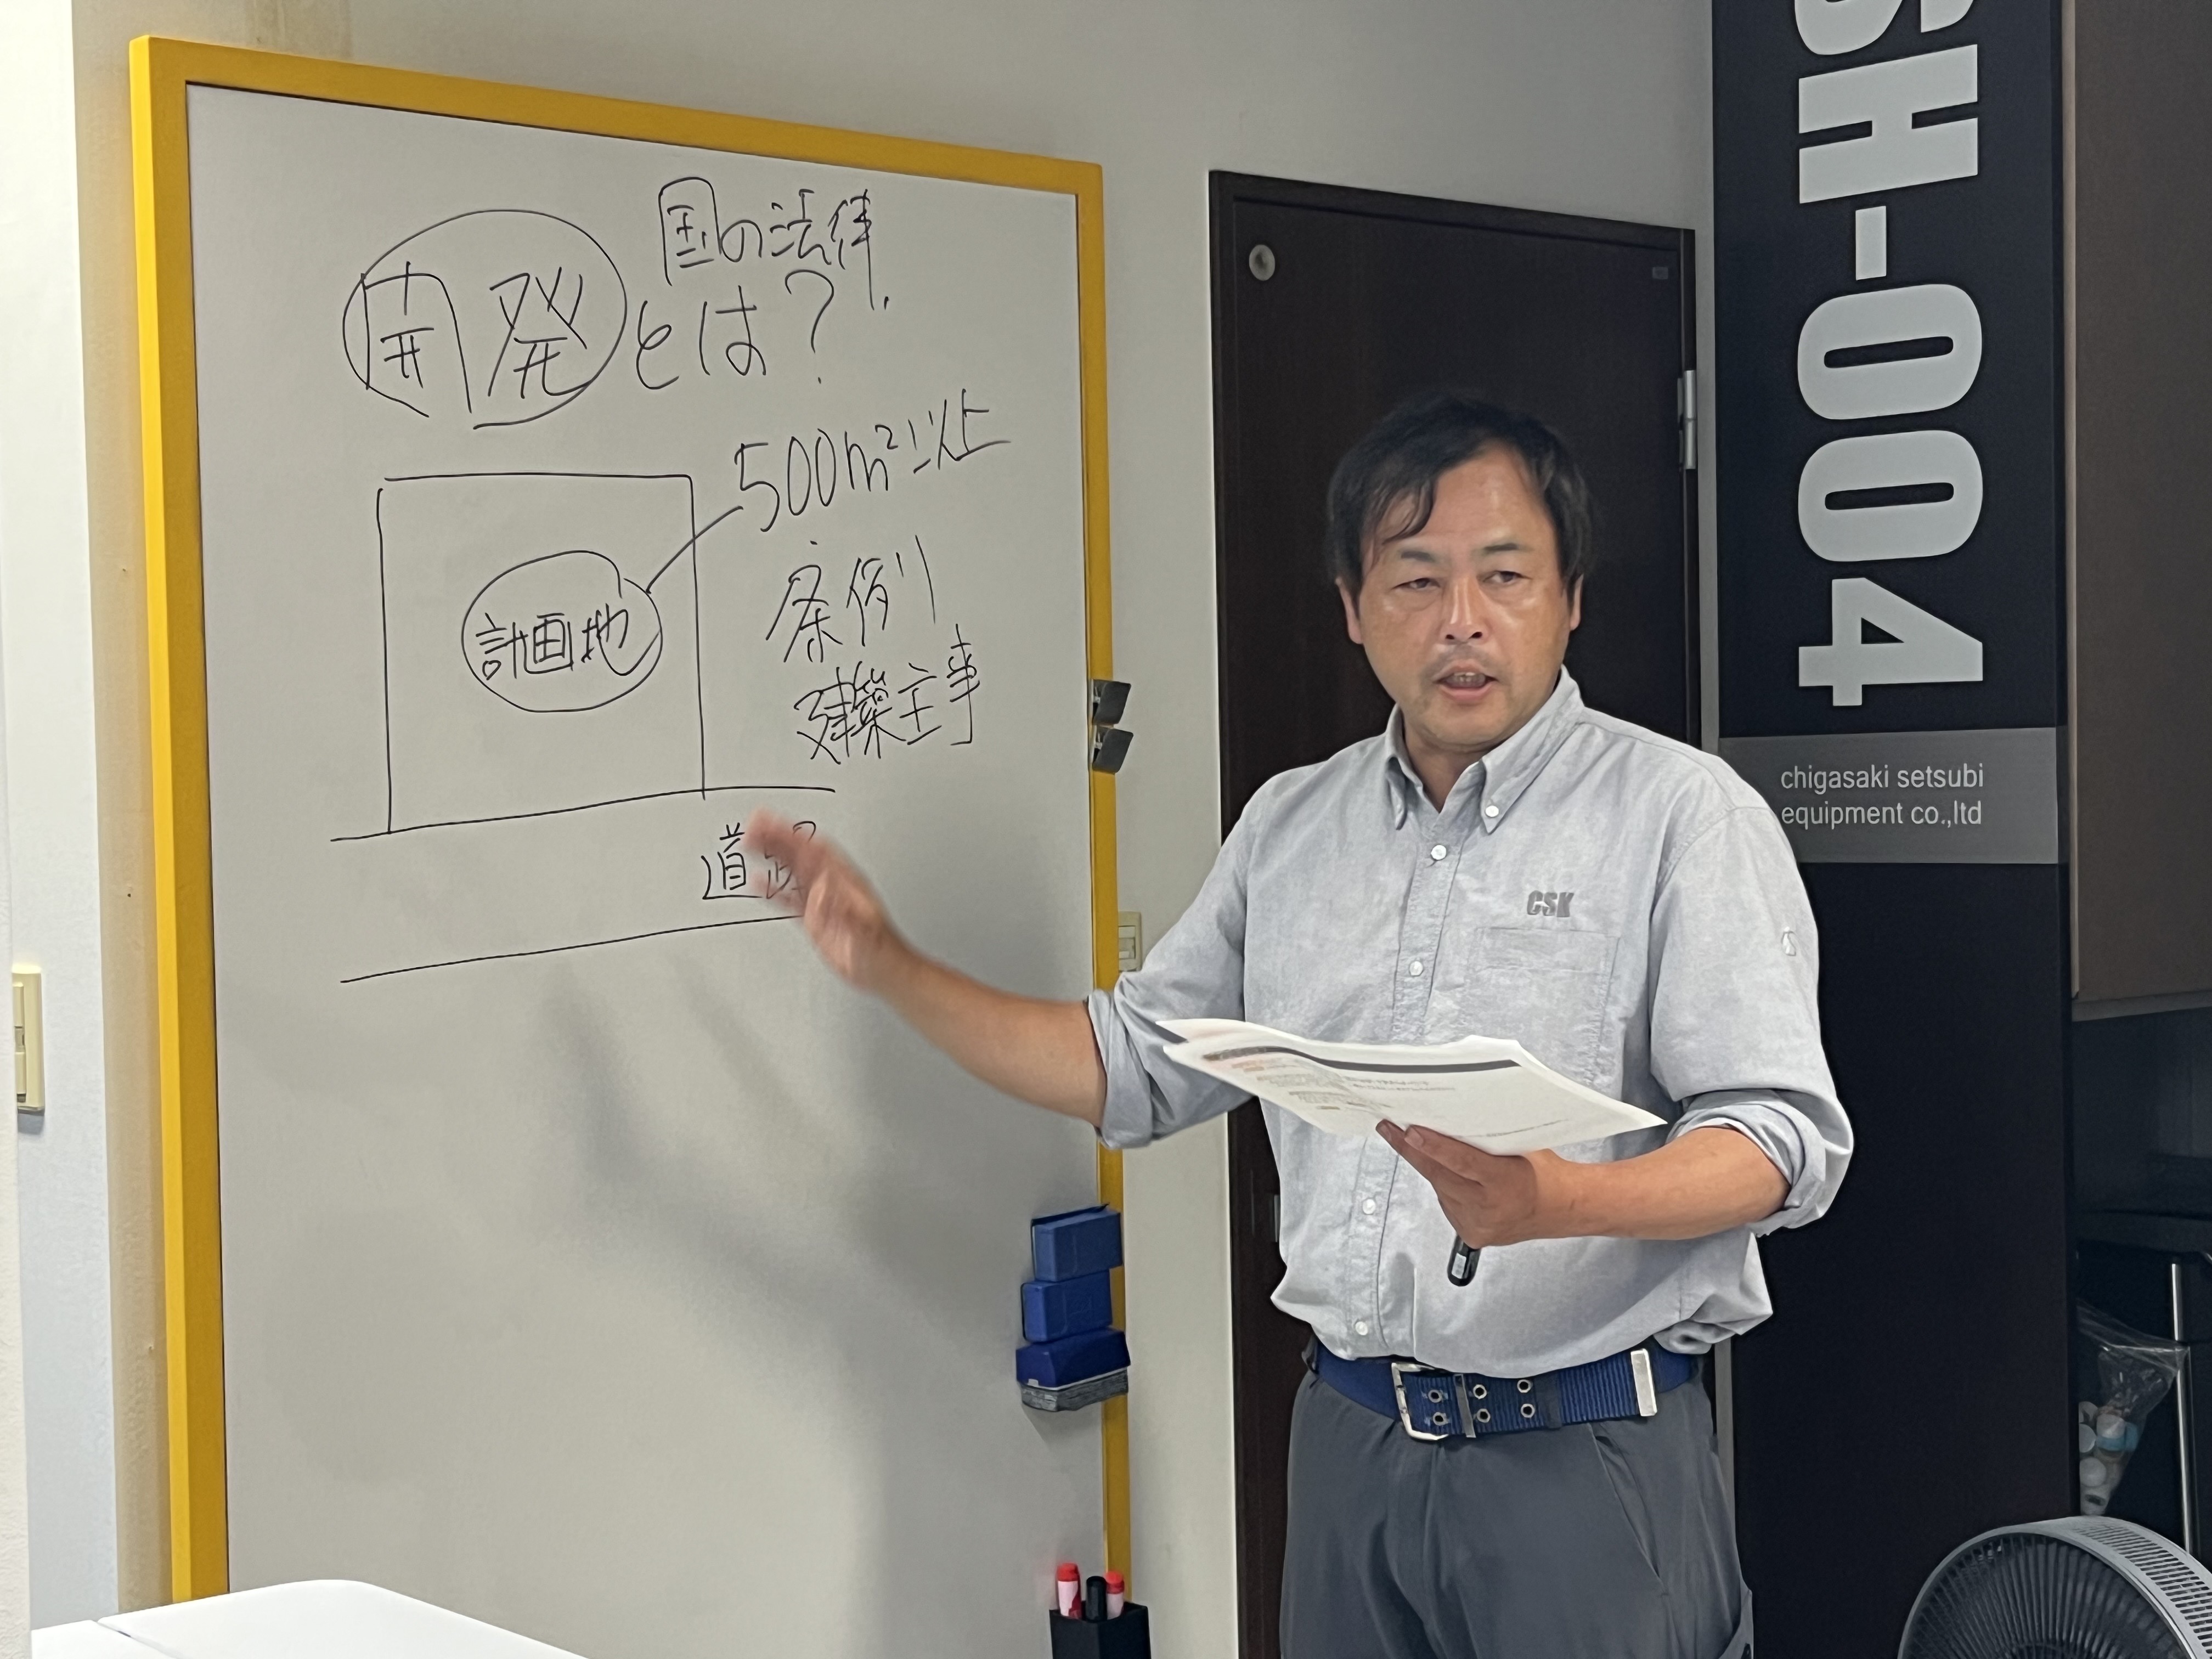 国の法律
開発とは?
500m²以上
計画地
条例
建築主事
道路
SH-004
chigasaki setsubi
equipment co.,ltd
CSK